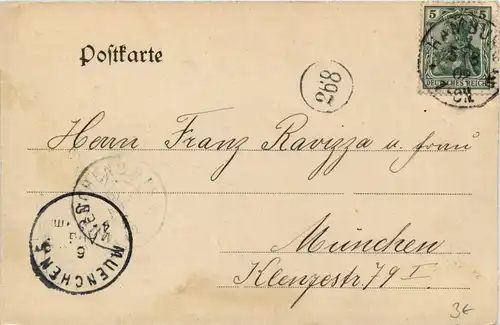 Postkarte
5 5
DEUTSCHES REICH
HAMBURG
268
Herrn Franz Ravizza u. Frau
München
Klenzestr. 79 I.
MUENCHEN
3€